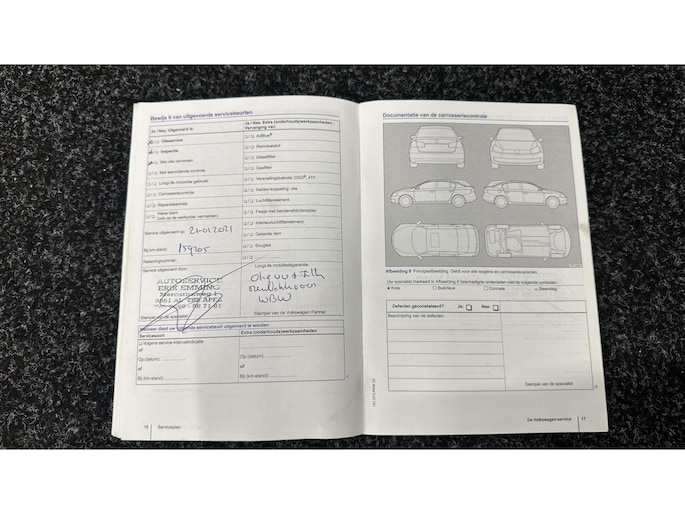 Bewijs 6 van uitgevoerde servicebeurten
Ja / Nee, Uitgevoerd is:
Olieservice
Inspectie
Met olie verversen
Met aanvullende controle
LongLife motorolie gebruikt
Carrosseriecontrole
Reparatieadvies
Wiens klant
Service uitgevoerd op: 21-01-2021
Bij km-stand: 159205
Rekeningnummer:
Service uitgevoerd door:
AUTOSERVICE
ERIK EMMING
Stempel van de specialist
Ja / Nee, Extra (onderhouds)werkzaamheden -
Vervanging van:
AdBlue®
Remvloeistof
Dieselfilter
Gasfilter
Versnellingsbakolie: DSG®, ATF
Haldex-koppeling: olie
Luchtfilterelement
Flesje met bandenafdichtmiddel
Interieurluchtfilterelement
Getande riem
Bougies
LongLife mobiliteitsgarantie
Stempel van de Volkswagen Partner
Wanneer dient uw volgende servicebeurt uitgevoerd te worden:
Servicesoort
Extra (onderhouds)werkzaamheden
Volgens service-intervalindicatie
of
Op (datum):
of
Bij (km-stand):
Op (datum):
of
Bij (km-stand):
16
Serviceplan
Documentatie van de carrosseriecontrole
Afbeelding 6 Principeafbeelding. Geldt voor alle wagens en carrosserievarianten.
Uw specialist markeert in Afbeelding 6 beschadigde onderdelen met de volgende symbolen:
Kras
Buil/deuk
Corrosie
Steenslag
Defecten geconstateerd?
Ja:
Nee:
Beschrijving van de defecten:
Stempel van de specialist
De Volkswagen-service
17